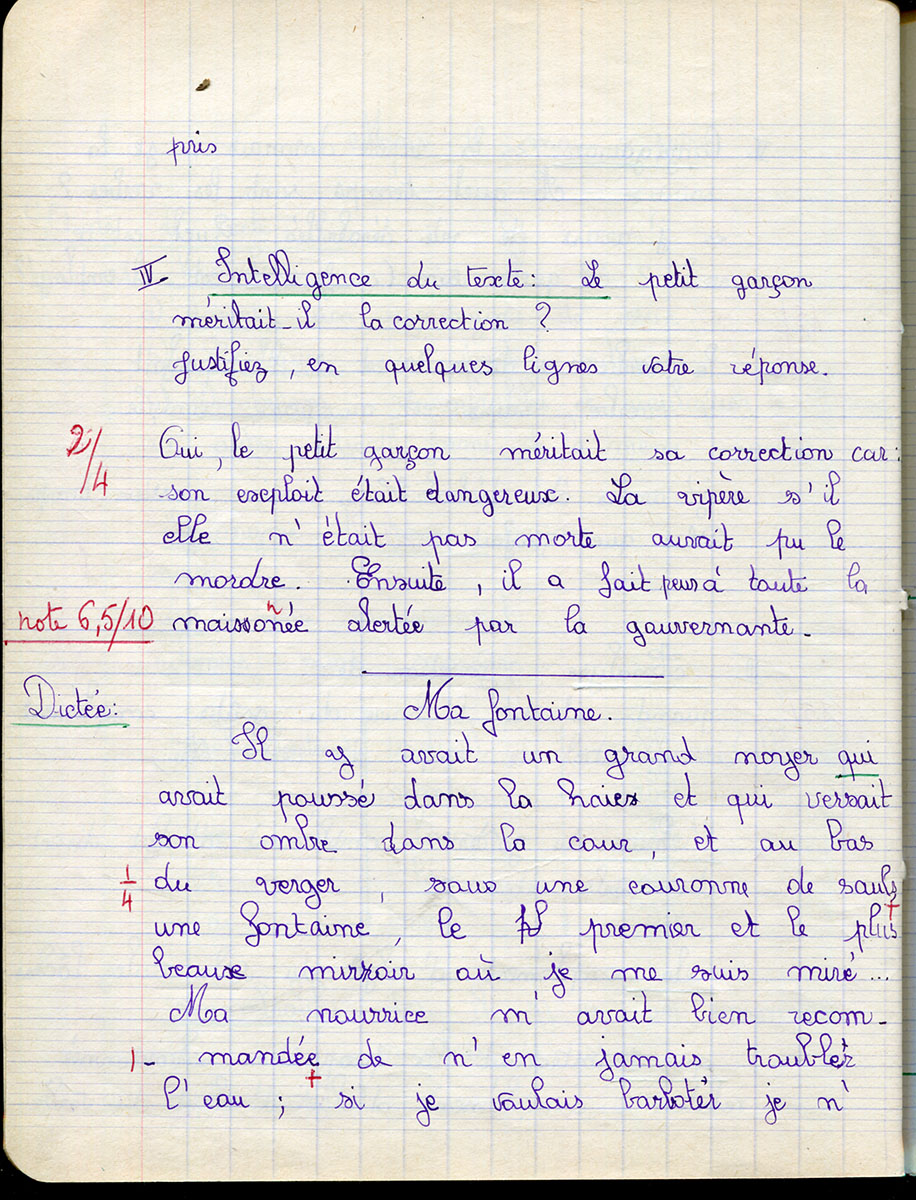 pris
IV Intelligence du texte : Le petit garçon
méritait-il la correction ?
Justifiez, en quelques lignes votre réponse.
2/4 Oui, le petit garçon méritait sa correction car :
son exploit était dangereux. La vipère s'il
elle n'était pas morte aurait pu le
mordre. Ensuite, il a fait peur à toute la
note 6,5/10 maissonnée alertée par la gouvernante.
Dictée : Ma fontaine.
Il y avait un grand noyer qui
avait poussé dans la haies et qui versait
son ombre dans la cour, et au bas
1/4 du verger, sous une couronne de sauls
une fontaine, le premier et le plus
beaux miroir où je me suis miré...
Ma nourrice m'avait bien recom-
1- mandée de n'en jamais troubler
l'eau ; si je voulais barboter je n'